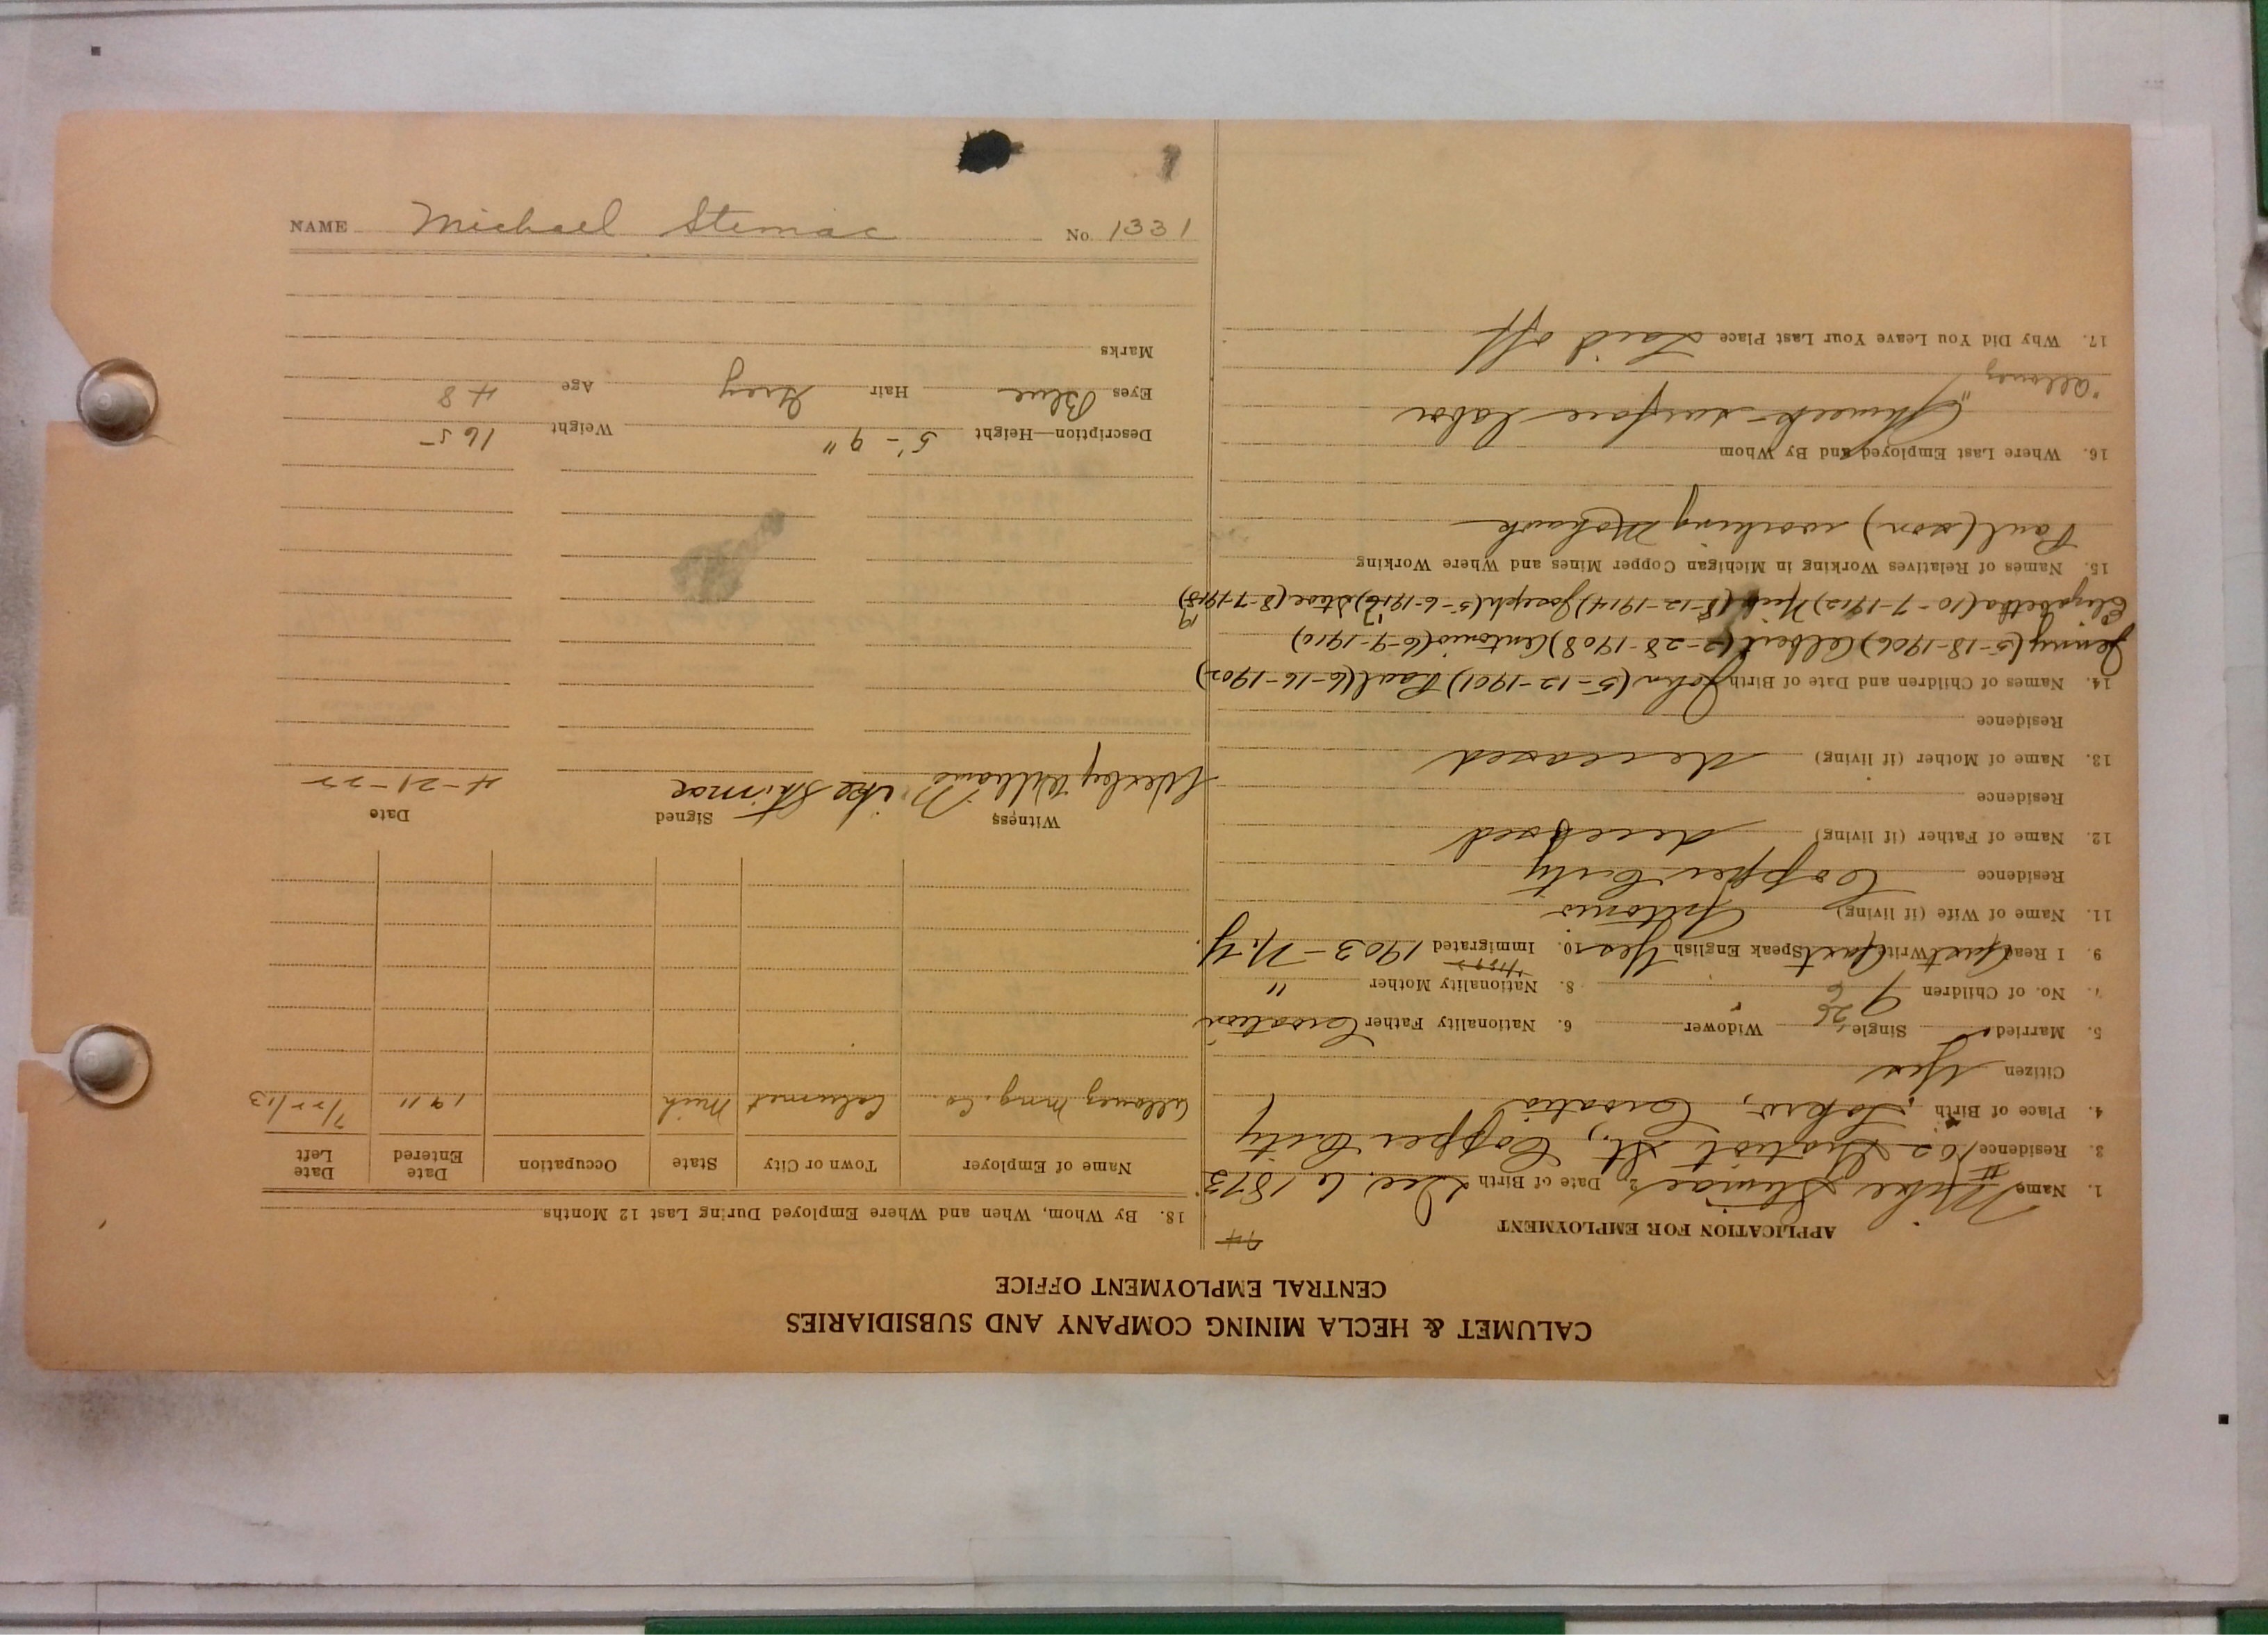 CALUMET & HECLA MINING COMPANY AND SUBSIDIARIES
CENTRAL EMPLOYMENT OFFICE
APPLICATION FOR EMPLOYMENT
1. Name Mike Stimac 2. Date of Birth Dec. 6 1873
3. Residence 102 Gratiot St., Copper City
4. Place of Birth Croatia
Citizen Yes
5. Married Single Widower 6. Nationality Father Croatian
7. No. of Children 9 8. Nationality Mother "
9. I Read Write Speak English Yes 10. Immigrated 1903 - N.Y.
11. Name of Wife (if living) Antonio
Residence Copper City
12. Name of Father (if living) deceased
Residence
13. Name of Mother (if living) deceased
Residence
14. Names of Children and Date of Birth John (5-12-1901) Paul (6-16-1902)
Jenny (5-18-1906) Albert (2-28-1908) Antonio (6-9-1910)
Elizabetha (10-7-1912) Nick (8-12-1914) Joseph (5-6-1916) Steve (8-7-1918)
15. Names of Relatives Working in Michigan Copper Mines and Where Working
Paul (son) working Mohawk
16. Where Last Employed and By Whom
Ahmeek - surface labor
"Allouez"
17. Why Did You Leave Your Last Place Laid off
18. By Whom, When and Where Employed During Last 12 Months
Name of Employer Town or City State Occupation Date Entered Date Left
Allouez Mng. Co. Calumet Mich 1911 7/22/13
Witness Signed Date
Wesley Williams Mike Stimac 4-21-22
Description—Height 5'-9" Weight 165
Eyes Blue Hair Grey Age 48
Marks
NAME Michael Stemac No. 1331